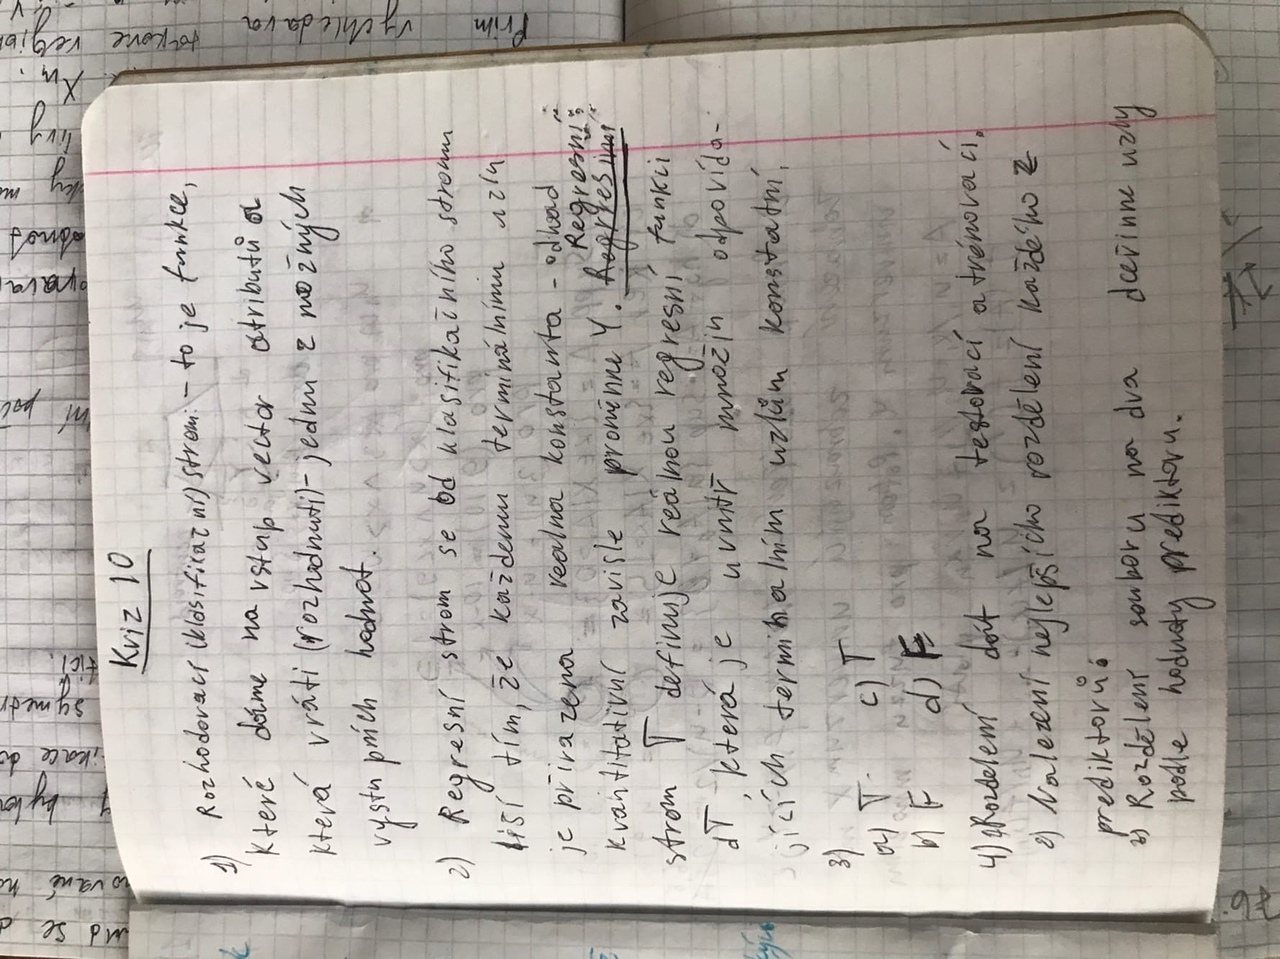 Kviz 10
1) Rozhodovací (klasifikační) strom - to je funkce,
které dáme na vstup vector atributů a
která vrátí (rozhodnutí) - jednu z možných
výstupních hodnot.
2) Regresní strom se od klasifikačního stromu
liší tím, že každemu terminálnímu uzlu
je přiřazena realna konstanta - odhad
kvantitativní zavisle proměnne Y. Regresní
strom T definuje reálnou regresní funkci
dT která je uvnitř množin odpovída-
jících terminalním uzlům konstatní.
3)
a) T c) T
b) F d) F
4) 1) Rozdelení dat na testovací a trénovací.
2) Nalezení nejlepšího rozdělení každého z
prediktorů.
3) Rozdělení souboru na dva dceřinne uzly
podle hodnoty prediktoru.